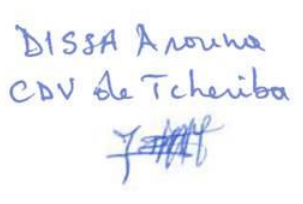 DISSA Arouna
CDV de Tcheriba